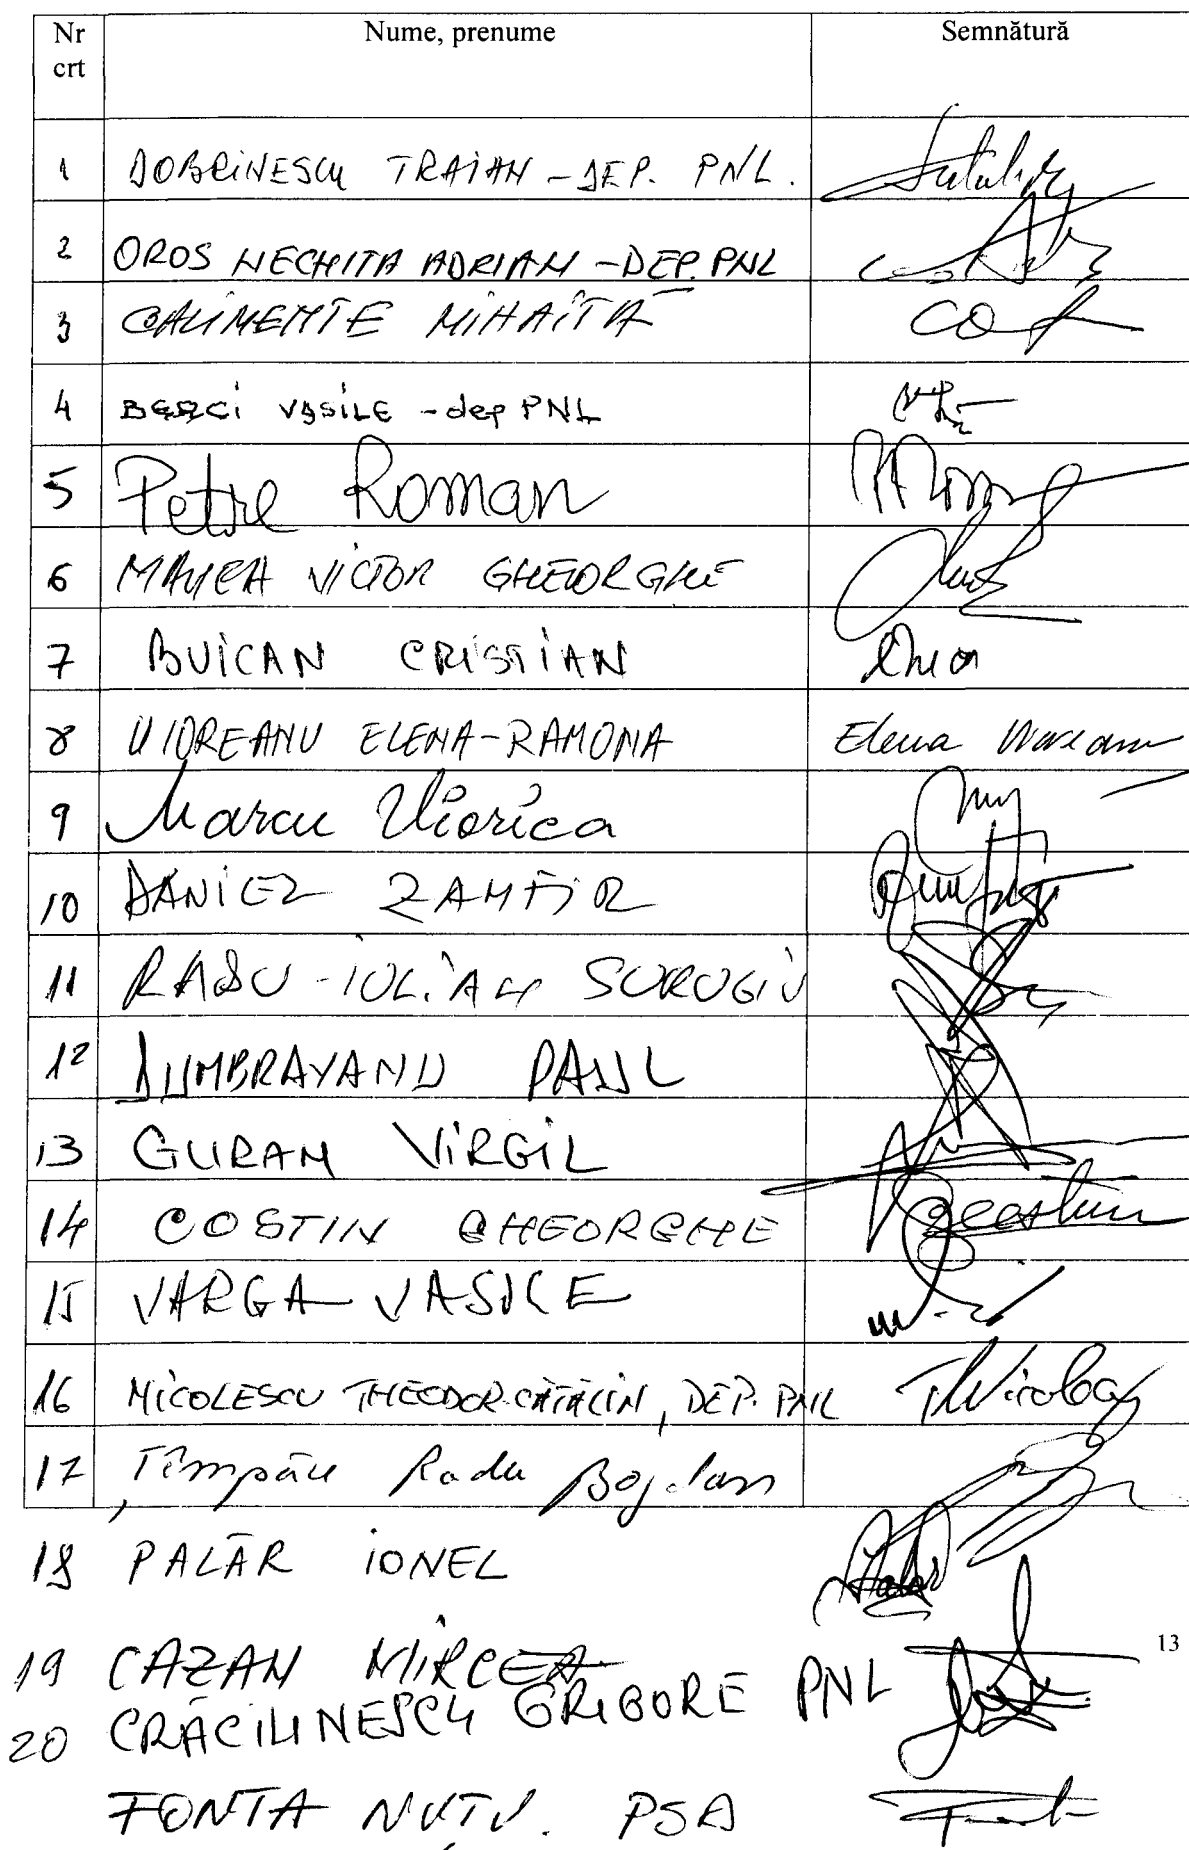 Nr crt Nume, prenume Semnătură
1 DOBRINESCU TRAIAN - DEP. PNL.
2 OROS NECHITA ADRIAN - DEP. PNL
3 CALIMENTE MIHĂIȚĂ
4 BERCI VASILE - dep PNL
5 Petre Roman
6 MANEA VICTOR GHEORGHE
7 BUICAN CRISTIAN
8 UIOREANU ELENA-RAMONA Elena Uioreanu
9 Marcu Viorica
10 DANIEL ZAMFIR
11 RADU-IULIAN SURUGIU
12 DUMBRAVANU PAUL
13 GURAN VIRGIL
14 COSTIN GHEORGHE
15 VARGA VASILE
16 NICOLESCU THEODOR CĂTĂLIN, DEP. PNL
17 Țîmpău Radu Bogdan
18 PALĂR IONEL
19 CAZAN MIRCEA
13
20 CRĂCIUNESCU GRIGORE PNL
FONTA NUȚU. PSD